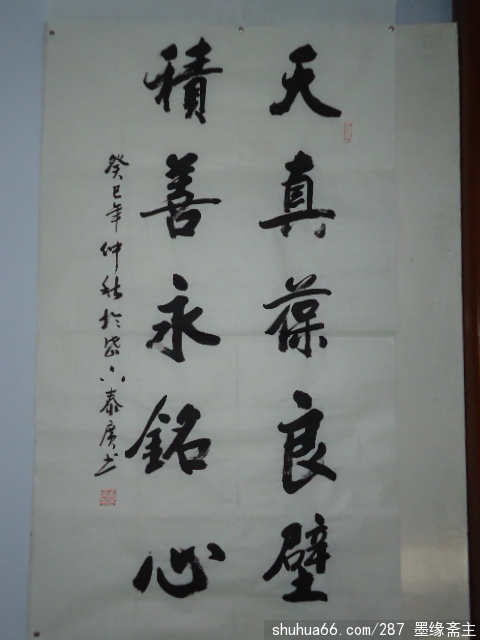 天真葆良壁
積善永銘心
癸巳年仲秋於岱下泰廣书
shuhua66.com/287 墨缘斋主